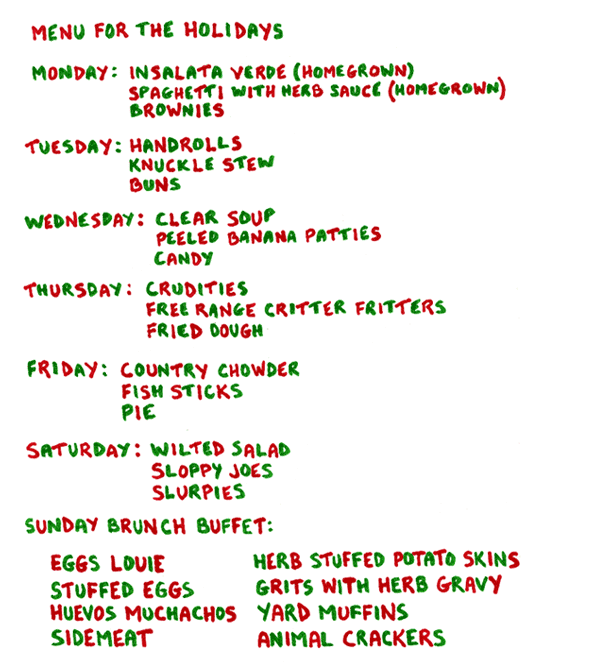 MENU FOR THE HOLIDAYS
MONDAY: INSALATA VERDE (HOMEGROWN)
SPAGHETTI WITH HERB SAUCE (HOMEGROWN)
BROWNIES
TUESDAY: HANDROLLS
KNUCKLE STEW
BUNS
WEDNESDAY: CLEAR SOUP
PEELED BANANA PATTIES
CANDY
THURSDAY: CRUDITIES
FREE RANGE CRITTER FRITTERS
FRIED DOUGH
FRIDAY: COUNTRY CHOWDER
FISH STICKS
PIE
SATURDAY: WILTED SALAD
SLOPPY JOES
SLURPIES
SUNDAY BRUNCH BUFFET:
EGGS LOUIE
STUFFED EGGS
HUEVOS MUCHACHOS
SIDEMEAT
HERB STUFFED POTATO SKINS
GRITS WITH HERB GRAVY
YARD MUFFINS
ANIMAL CRACKERS